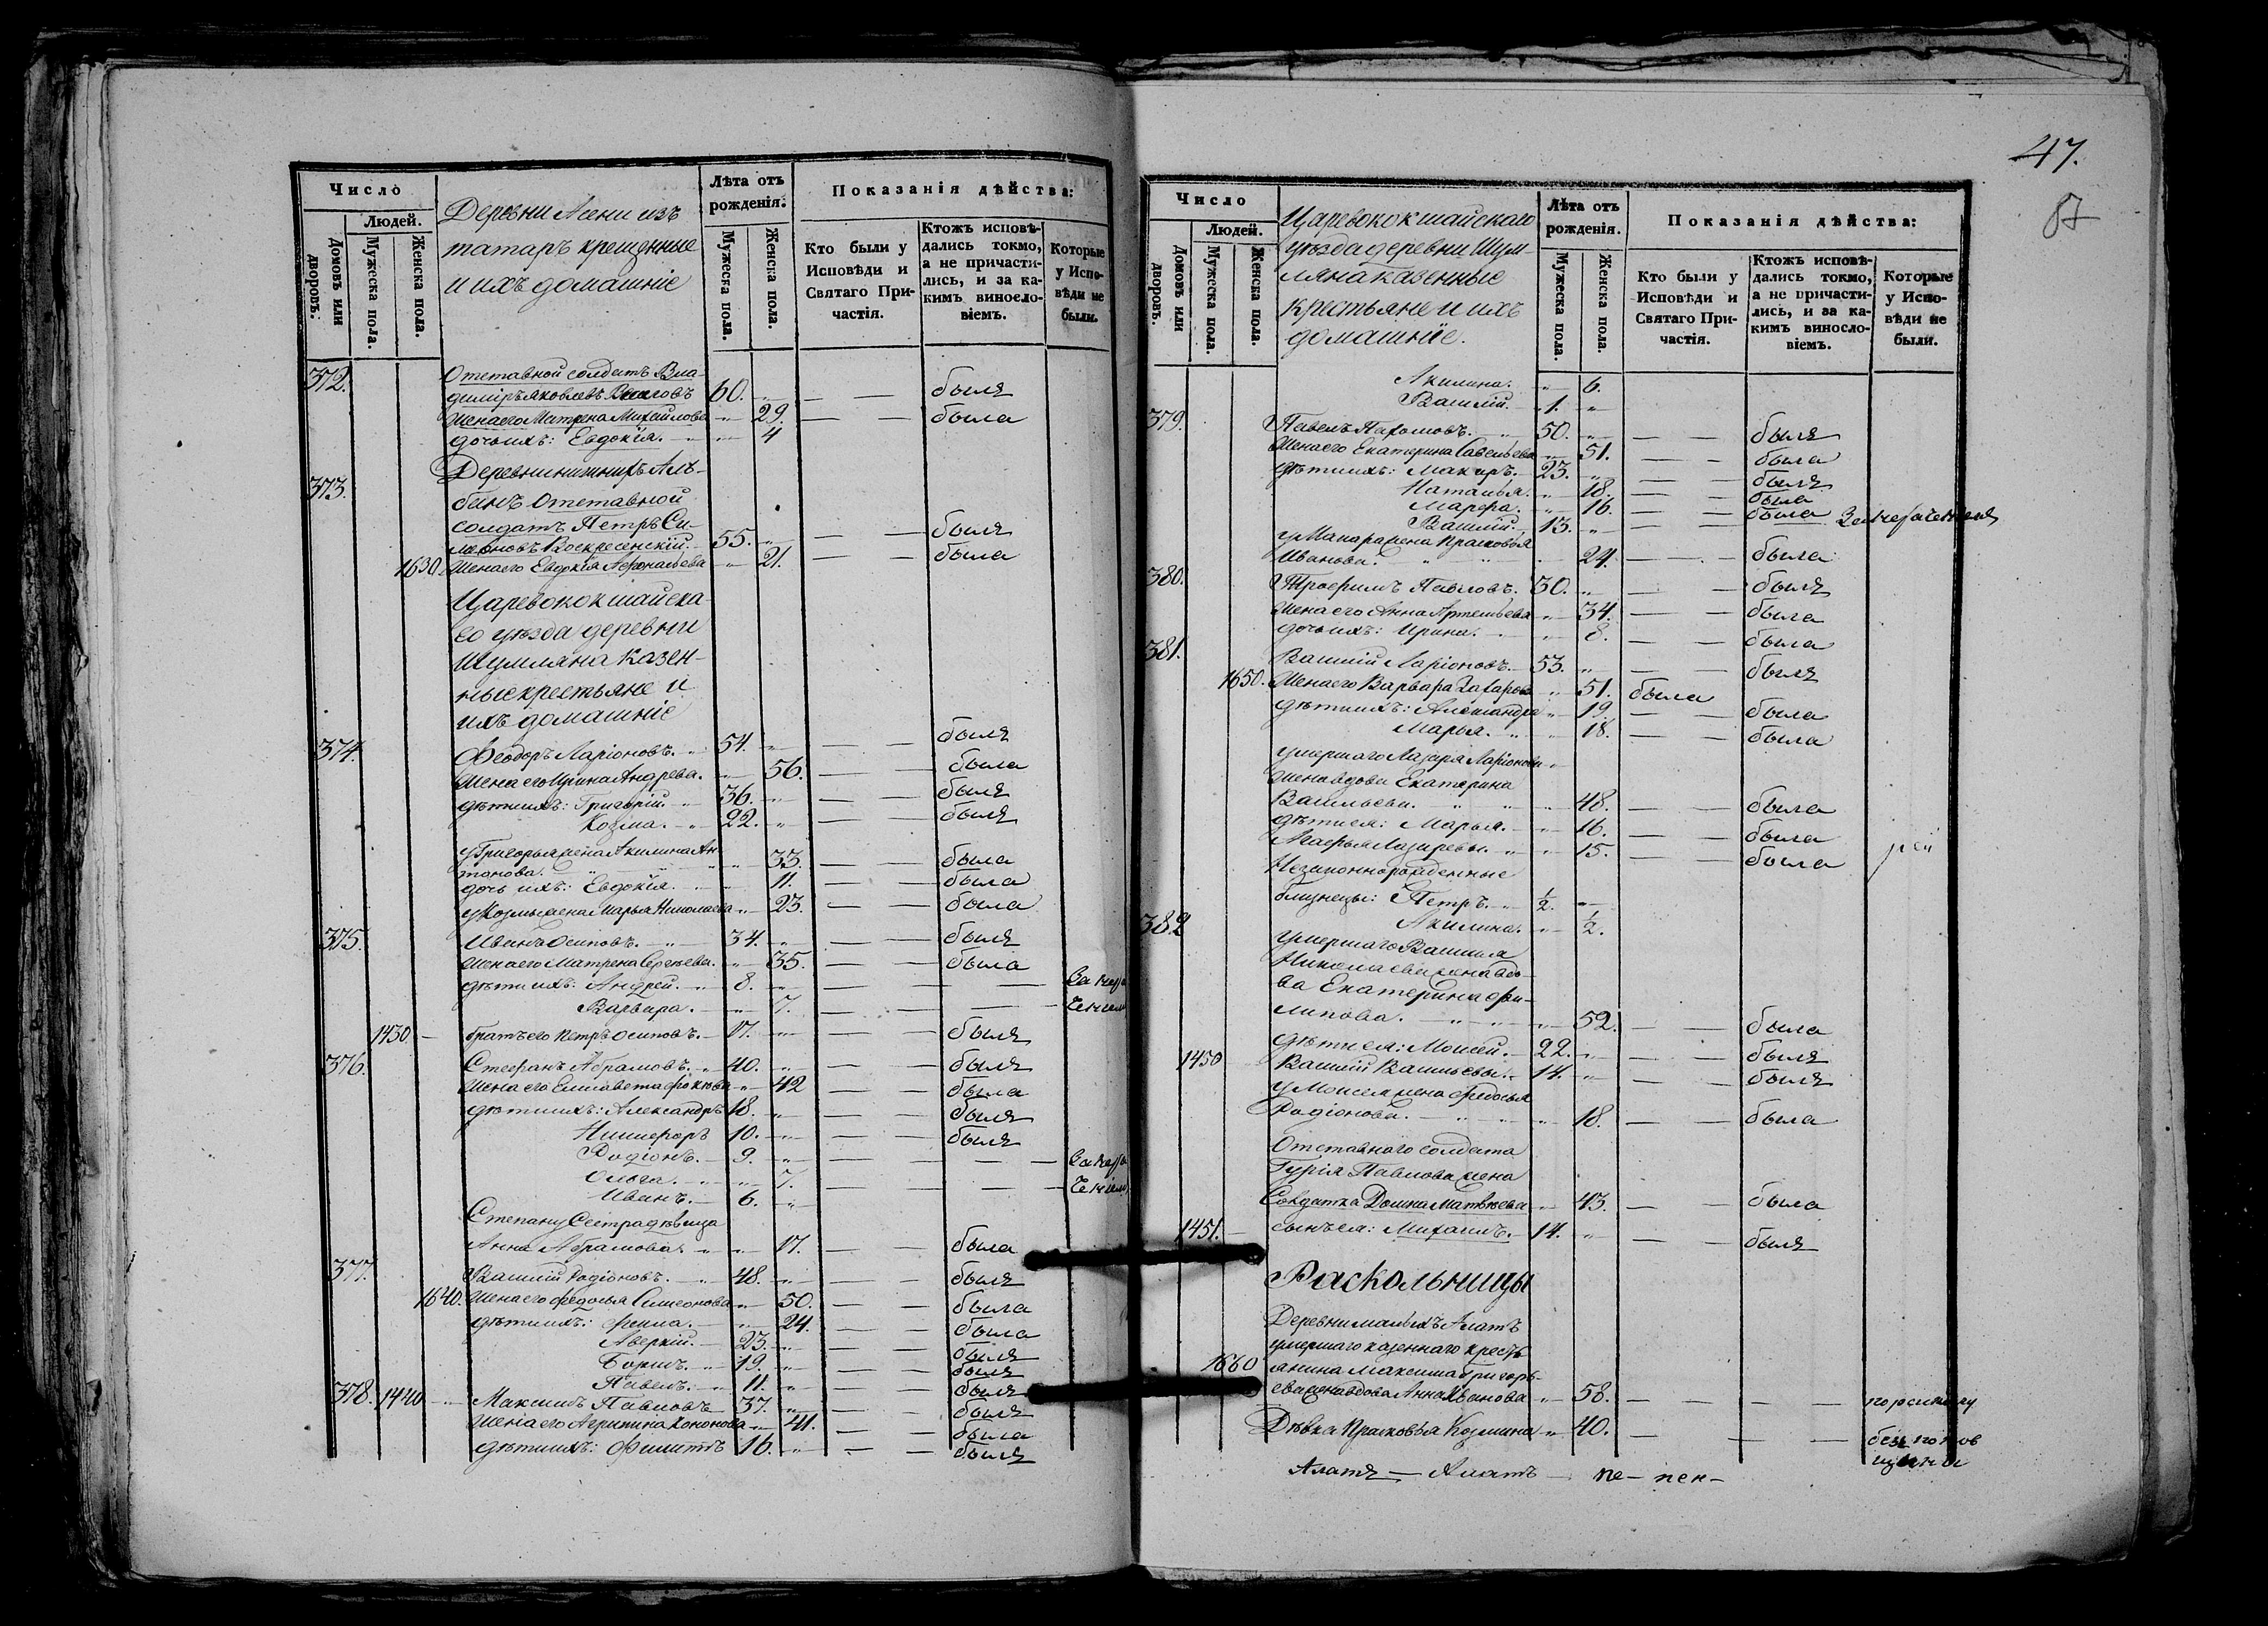 Число
Людей.
Домовъ или дворовъ.
Мужеска пола.
Женска пола.
Деревни Асени изъ
татаръ крещенные
и ихъ домашніе
Лѣта отъ рожденія.
Мужеска пола.
Женска пола.
Показанія дѣйства:
Кто были у Исповѣди и Святаго Причастія.
Ктожъ исповѣдались токмо, а не причастились, и за какимъ винословіемъ.
Которые у Исповѣди не были.
372. Отставной солдатъ Вла-
диміръ Яковлевъ 60. „ — — былъ
Жена его Матрена Михайлова „ 29. — — была
дочь ихъ: Евдокія. „ 4
Деревни нижнихъ Ал-
373. банъ Отставной
солдатъ Петръ Си-
меоновъ Воскресенскій. 55. „ — — былъ
1630 Жена его Евдокія Афонасьева „ 21. — — была
Царевококшайска-
го уѣзда деревни
Шумляна казен-
ные крестьяне и
ихъ домашніе
374. Феодоръ Ларіоновъ. 54. „ — — былъ
Жена его Ирина Андреева. „ 56. — — была
дѣти ихъ: Григорій. 36. „ — — былъ
Козма. 22. „ — — былъ
у Григорья жена Акилина Ан-
тонова. „ 33. — — была
дочь ихъ: Евдокія. „ 11. — — была
у Козмы жена Марья Николаева „ 23. — — была
375. Иванъ Осиповъ. 34. „ — — былъ
Жена его Матрена Сергѣева. „ 35. — — была
дѣти ихъ: Андрей. 8. „ — — —
Варвара. „ 7. — — —
1430 — братъ его Петръ Осиповъ. 17. „ — — былъ
376. Стефанъ Абрамовъ. 40. „ — — былъ
Жена его Елисавета Фокѣева „ 42 — — была
дѣти ихъ: Александръ 18. „ — — былъ
Никифоръ 10. „ — — былъ
Родіонъ. 9. „ — — —
Ольга. „ 7. — — —
Иванъ. 6. „
Степану Сестра дѣвица
Анна Абрамова „ 17. — — была
377. Василій Родіоновъ. 48. „ — — былъ
1640. Жена его Федосья Симеонова „ 50. — — была
дѣти ихъ: Фекла. „ 24. — — была
Аверкій. 23. „ — — былъ
Борисъ. 19. „ — — былъ
Павелъ. 11. „ — — былъ
378. 1440 — Максимъ Павловъ 37. „ — былъ
Жена его Агрипина Кононова „ 41. — — была
дѣти ихъ: Филиппъ 16. „ — — былъ
47.
87
Число
Людей.
Домовъ или дворовъ.
Мужеска пола.
Женска пола.
Царевококшайскаго
уѣзда деревни Шум-
ляна казенные
крестьяне и ихъ
домашніе.
Лѣта отъ рожденія.
Мужеска пола.
Женска пола.
Показанія дѣйства:
Кто были у Исповѣди и Святаго Причастія.
Ктожъ исповѣдались токмо, а не причастились, и за какимъ винословіемъ.
Которые у Исповѣди не были.
Акилина. „ 6.
Василій. 1. „
379. Павелъ Пахомовъ. 50. „ — — былъ
Жена его Екатерина Савельева „ 51. — — была
дѣти ихъ: Макаръ. 23. „ — — былъ
Наталья. „ 18. — — была
Марфа. „ 16. — — была
Василій. 13. „ — —
у Макара жена Прасковья
Иванова. „ 24. — — была
380. Трофимъ Павловъ. 30. „ — — былъ
Жена его Анна Артемьева „ 34. — — была
дочь ихъ: Ирина. „ 8. — — была
381. Василій Ларіоновъ. 53. „ — — былъ
1650. Жена его Варвара Захарова „ 51. была
дѣти ихъ: Александра „ 19. — — была
Марья. „ 18. — — была
умершаго Лазаря Ларіонова
жена вдова Екатерина
Васильева. „ 48. — — была
дѣти ея: Марья. „ 16. — — была
Агафья Лазаревы. „ 15. — — была
Незаконнорожденные
близнецы: Петръ. ½. —
382 Акилина. „ ½.
умершаго Василья
Николаева жена вдо-
ва Екатерина Фи-
липова. „ 52. — — была
дѣти ея: Моисей. 22. „ — — былъ
1450 Василій Васильевы. 14. „ — — былъ
у Моисея жена Федосья
Родіонова. „ 18. — — была
Отставнаго солдата
Гурія Павлова жена
Солдатка Домна Матвѣева „ 43. — — была
1451. — сынъ ея: Михаилъ. 14. „ — — былъ
Раскольницы
Деревни малыхъ Алатъ
умершаго казеннаго кресть
1660 янина Максима Григорь-
ева жена вдова Анна Иванова „ 58. — — — —
Дѣвка Прасковья Козмина „ 40. — — —
Алатъ — Алатъ — пе — пен —